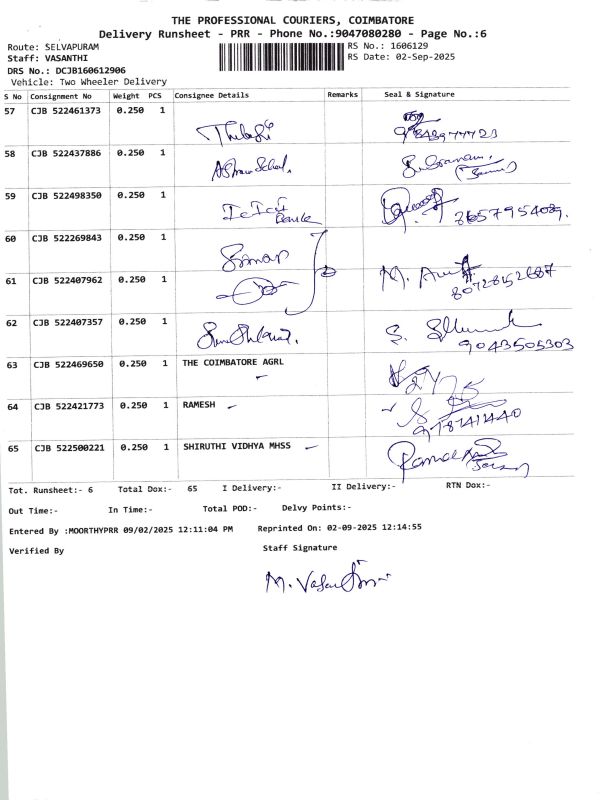 THE PROFESSIONAL COURIERS, COIMBATORE
Delivery Runsheet - PRR - Phone No.:9047080280 - Page No.:6
Route: SELVAPURAM RS No.: 1606129
Staff: VASANTHI RS Date: 02-Sep-2025
DRS No.: DCJB160612906
Vehicle: Two Wheeler Delivery
S No Consignment No Weight PCS Consignee Details Remarks Seal & Signature
57 CJB 522461373 0.250 1
58 CJB 522437886 0.250 1
59 CJB 522498350 0.250 1 ICICI Bank
60 CJB 522269843 0.250 1
61 CJB 522407962 0.250 1 M.
8072852687
62 CJB 522407357 0.250 1 S.
9043505303
63 CJB 522469650 0.250 1 THE COIMBATORE AGRL
64 CJB 522421773 0.250 1 RAMESH
65 CJB 522500221 0.250 1 SHIRUTHI VIDHYA MHSS
Tot. Runsheet:- 6 Total Dox:- 65 I Delivery:- II Delivery:- RTN Dox:-
Out Time:- In Time:- Total POD:- Delvy Points:-
Entered By :MOORTHYPRR 09/02/2025 12:11:04 PM Reprinted On: 02-09-2025 12:14:55
Verified By Staff Signature
M. Vasanthi